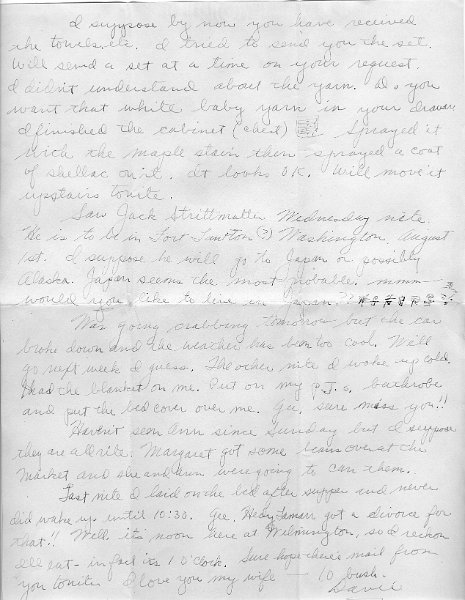 I suppose by now you have received
the towels, etc. I tried to send you the set.
Will send a set at a time on your request.
I didn't understand about the yarn. Do you
want that white baby yarn in your drawer
I finished the cabinet (chest) Sprayed it
with the maple stain then sprayed a coat
of shellac on it. It looks O.K. Will move it
upstairs tonite.
Saw Jack Strittmatter Wednesday nite.
He is to be in Fort (?) Washington, August
1st. I suppose he will go to Japan or possibly
Alaska. Japan seems the most probable. mmm—
would you like to live in Japan?
Was going crabbing tomorrow but the car
broke down and the weather has been too cool. We'll
go next week I guess. The other nite I woke up cold.
I had the blanket on me. Put on my P.J.s, bathrobe
and put the bed cover over me. Gee, sure miss you!!
Haven't seen Ann since Sunday but I suppose
they are allrite. Margaret got some beans over at the
Market and she and Ann were going to can them.
Last nite I laid on the bed after supper and never
did wake up until 10:30. Gee, Hedy Lamarr got a divorce for
that!! Well, it's noon here at Wilmington, so I reckon
I'll eat - in fact its 1 o'clock. Sure hope there's mail from
you tonite. I love you my wife — 10 bush.
Dave